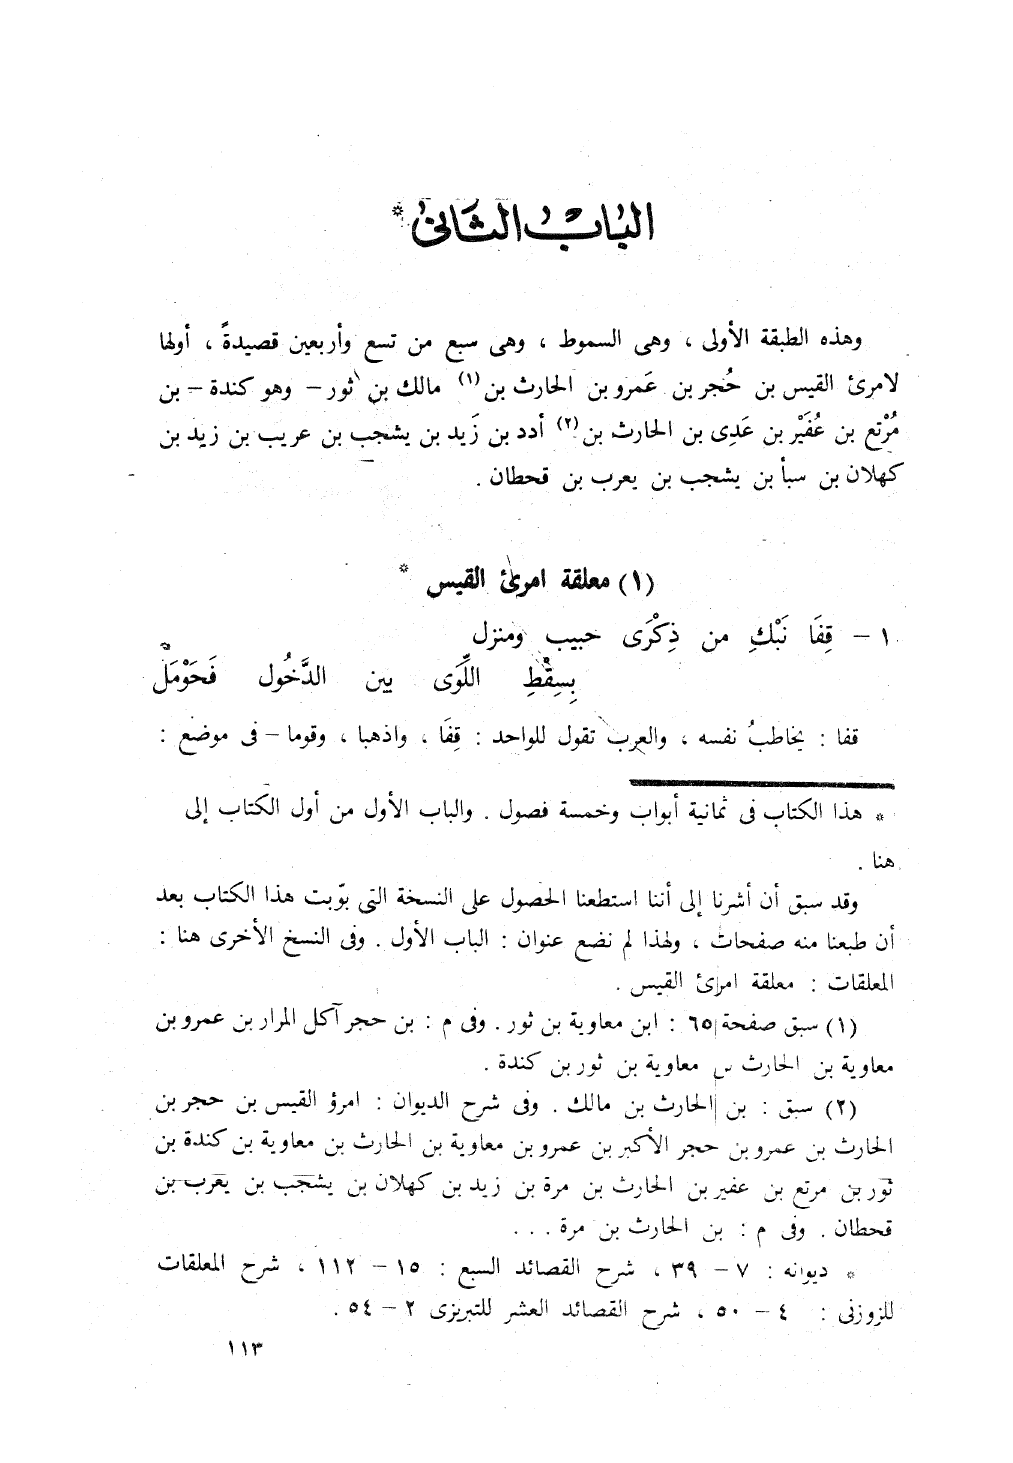 الباب الثانى *
وهذه الطبقة الأولى ، وهى السموط ، وهى سبع من تسع وأربعين قصيدةً ، أولها
لامرئ القيس بن حُجر بن عَمرو بن الحارث بن (١) مالك بن ثور – وهو كندة – بن
مُرْتع بن عُفَيْر بن عَدِى بن الحارث بن (٢) أدد بن زَيد بن يشجب بن عريب بن زيد بن
كهلان بن سبأ بن يشجب بن يعرب بن قحطان .
(١) معلقة امرئ القيس *
١ – قِفَا نَبْكِ من ذِكْرَى حبيب ومنزل
بِسِقْطِ اللِّوَى بين الدَّخُول فَحَوْمَلِ
قفا : يخاطبُ نفسه ، والعرب تقول للواحد : قِفَا ، واذهبا ، وقوما – فى موضع :
* هذا الكتاب فى ثمانية أبواب وخمسة فصول . والباب الأول من أول الكتاب إلى
هنا .
وقد سبق أن أشرنا إلى أننا استطعنا الحصول على النسخة التى بوّبت هذا الكتاب بعد
أن طبعنا منه صفحات ، ولهذا لم نضع عنوان : الباب الأول . وفى النسخ الأخرى هنا :
المعلقات : معلقة امرئ القيس .
(١) سبق صفحة ٦٥ : ابن معاوية بن ثور . وفى م : بن حجر آكل المرار بن عمرو بن
معاوية بن الحارث بن معاوية بن ثور بن كندة .
(٢) سبق : بن الحارث بن مالك . وفى شرح الديوان : امرؤ القيس بن حجر بن
الحارث بن عمرو بن حجر الأكبر بن عمرو بن معاوية بن الحارث بن معاوية بن كندة بن
ثور بن مرتع بن عفير بن الحارث بن مرة بن زيد بن كهلان بن يشجب بن يعرب بن
قحطان . وفى م : بن الحارث بن مرة . . .
* ديوانه : ٧ – ٣٩ ، شرح القصائد السبع : ١٥ – ١١٢ ، شرح المعلقات
للزوزنى : ٤ – ٥٠ ، شرح القصائد العشر للتبريزى ٢ – ٥٤ .
١١٣